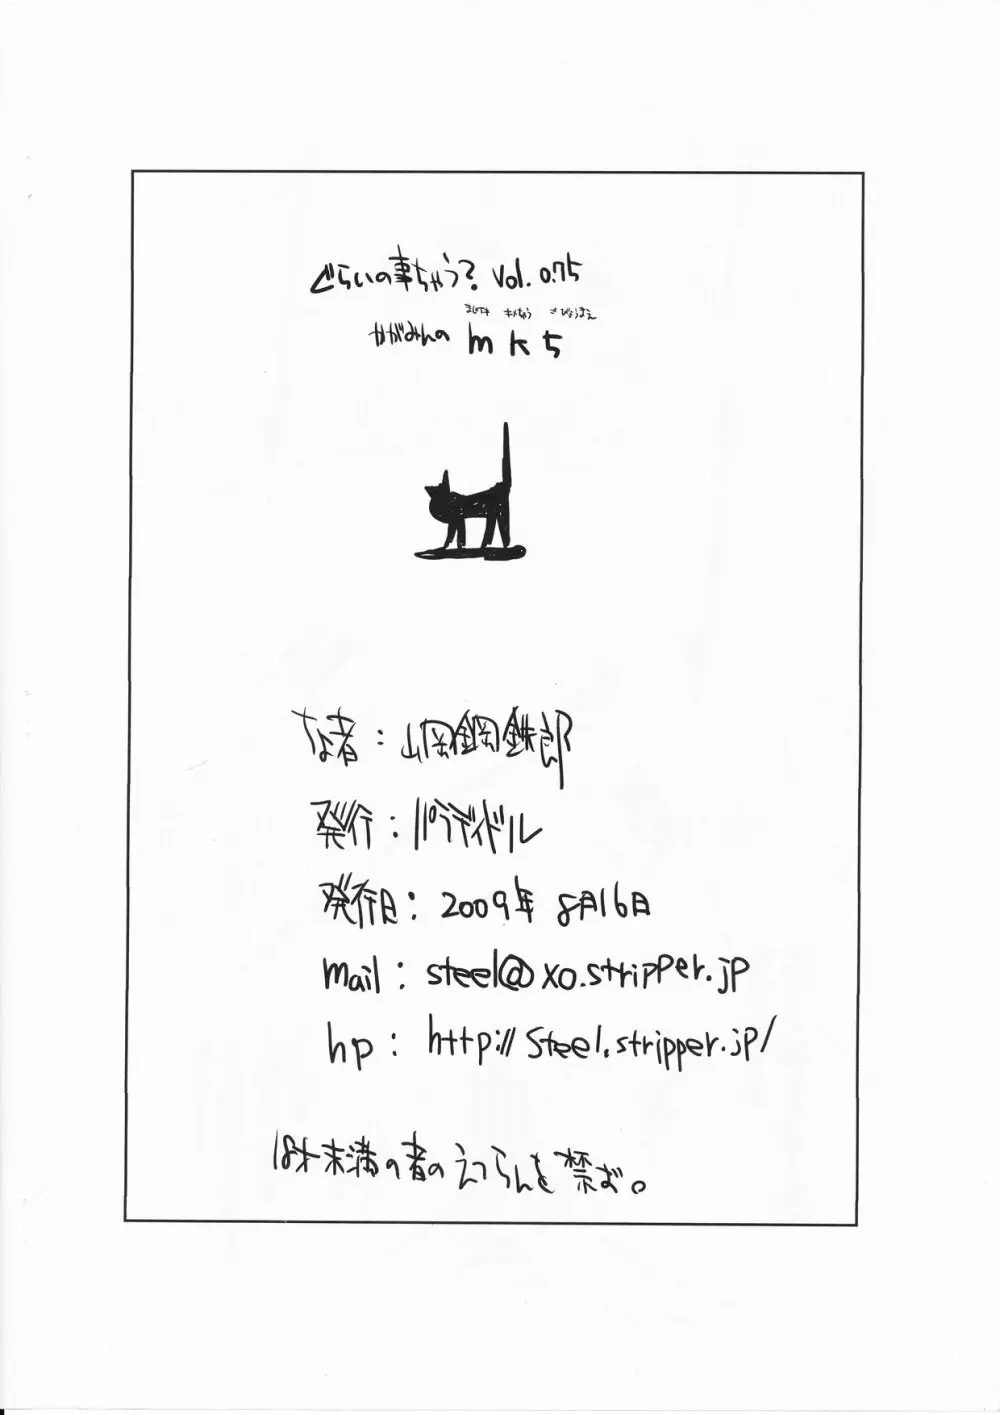 どらいの事ちゃう? Vol. 0.75
かがみんの mk5
なまえ者 : 山岡鋼鉄郎
発行 : パラディドル
発行日 : 2009年 8月16日
mail : steel@xo.stripper.jp
hp : http://steel.stripper.jp/
18才未満の者のえつらんを禁ず。